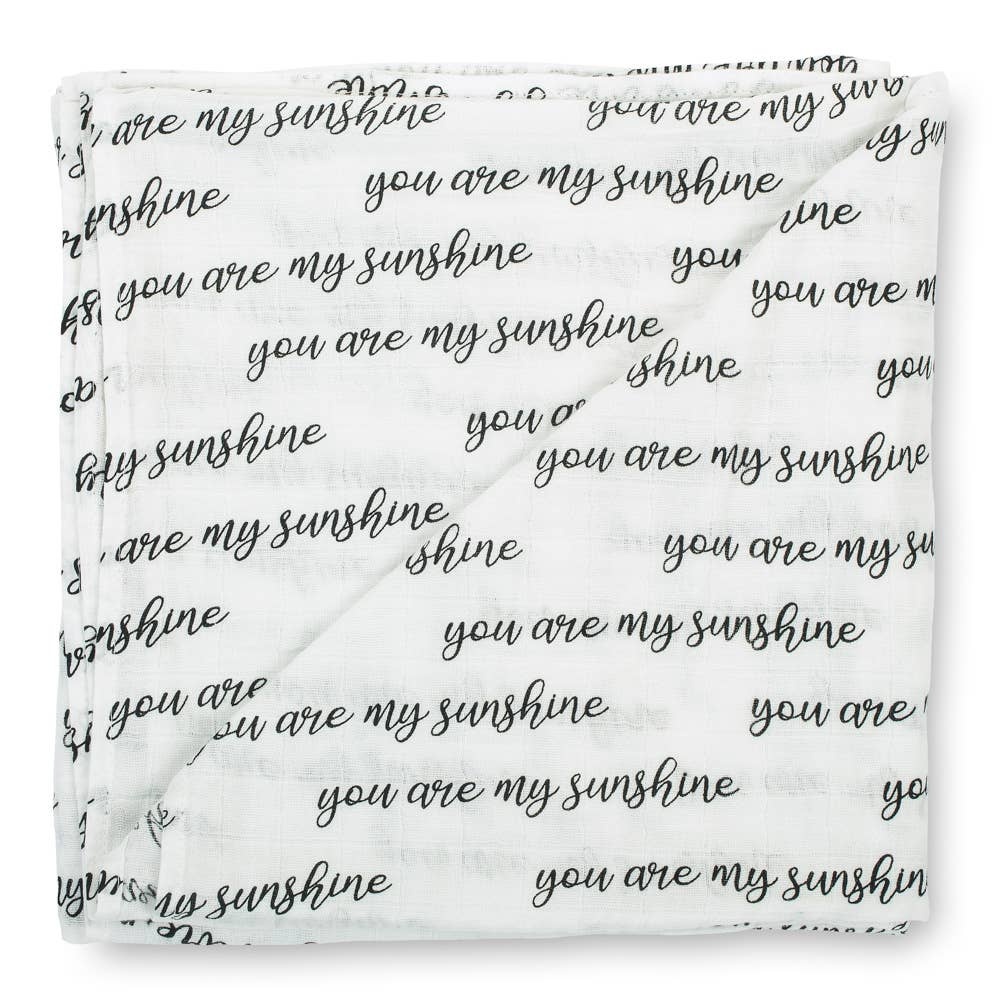 are my sunshine you are my sun
you are my sunshine
nshine
ine
you are my sunshine you
you are m
you are my sunshine
shine you
you a
my sunshine
you are my sunshine
are my sunshine
shine you are my su
nshine
you are my sunshine
you are
you are my sunshine you are
you are my sunshine yo
my sunshine you are my sunshin